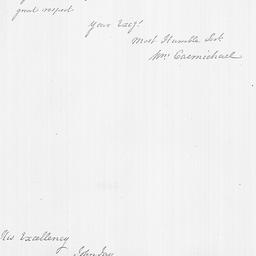 great respect
Your Excy!
Most Humble Sert
Wm Carmichael
His Excellency
John Jay